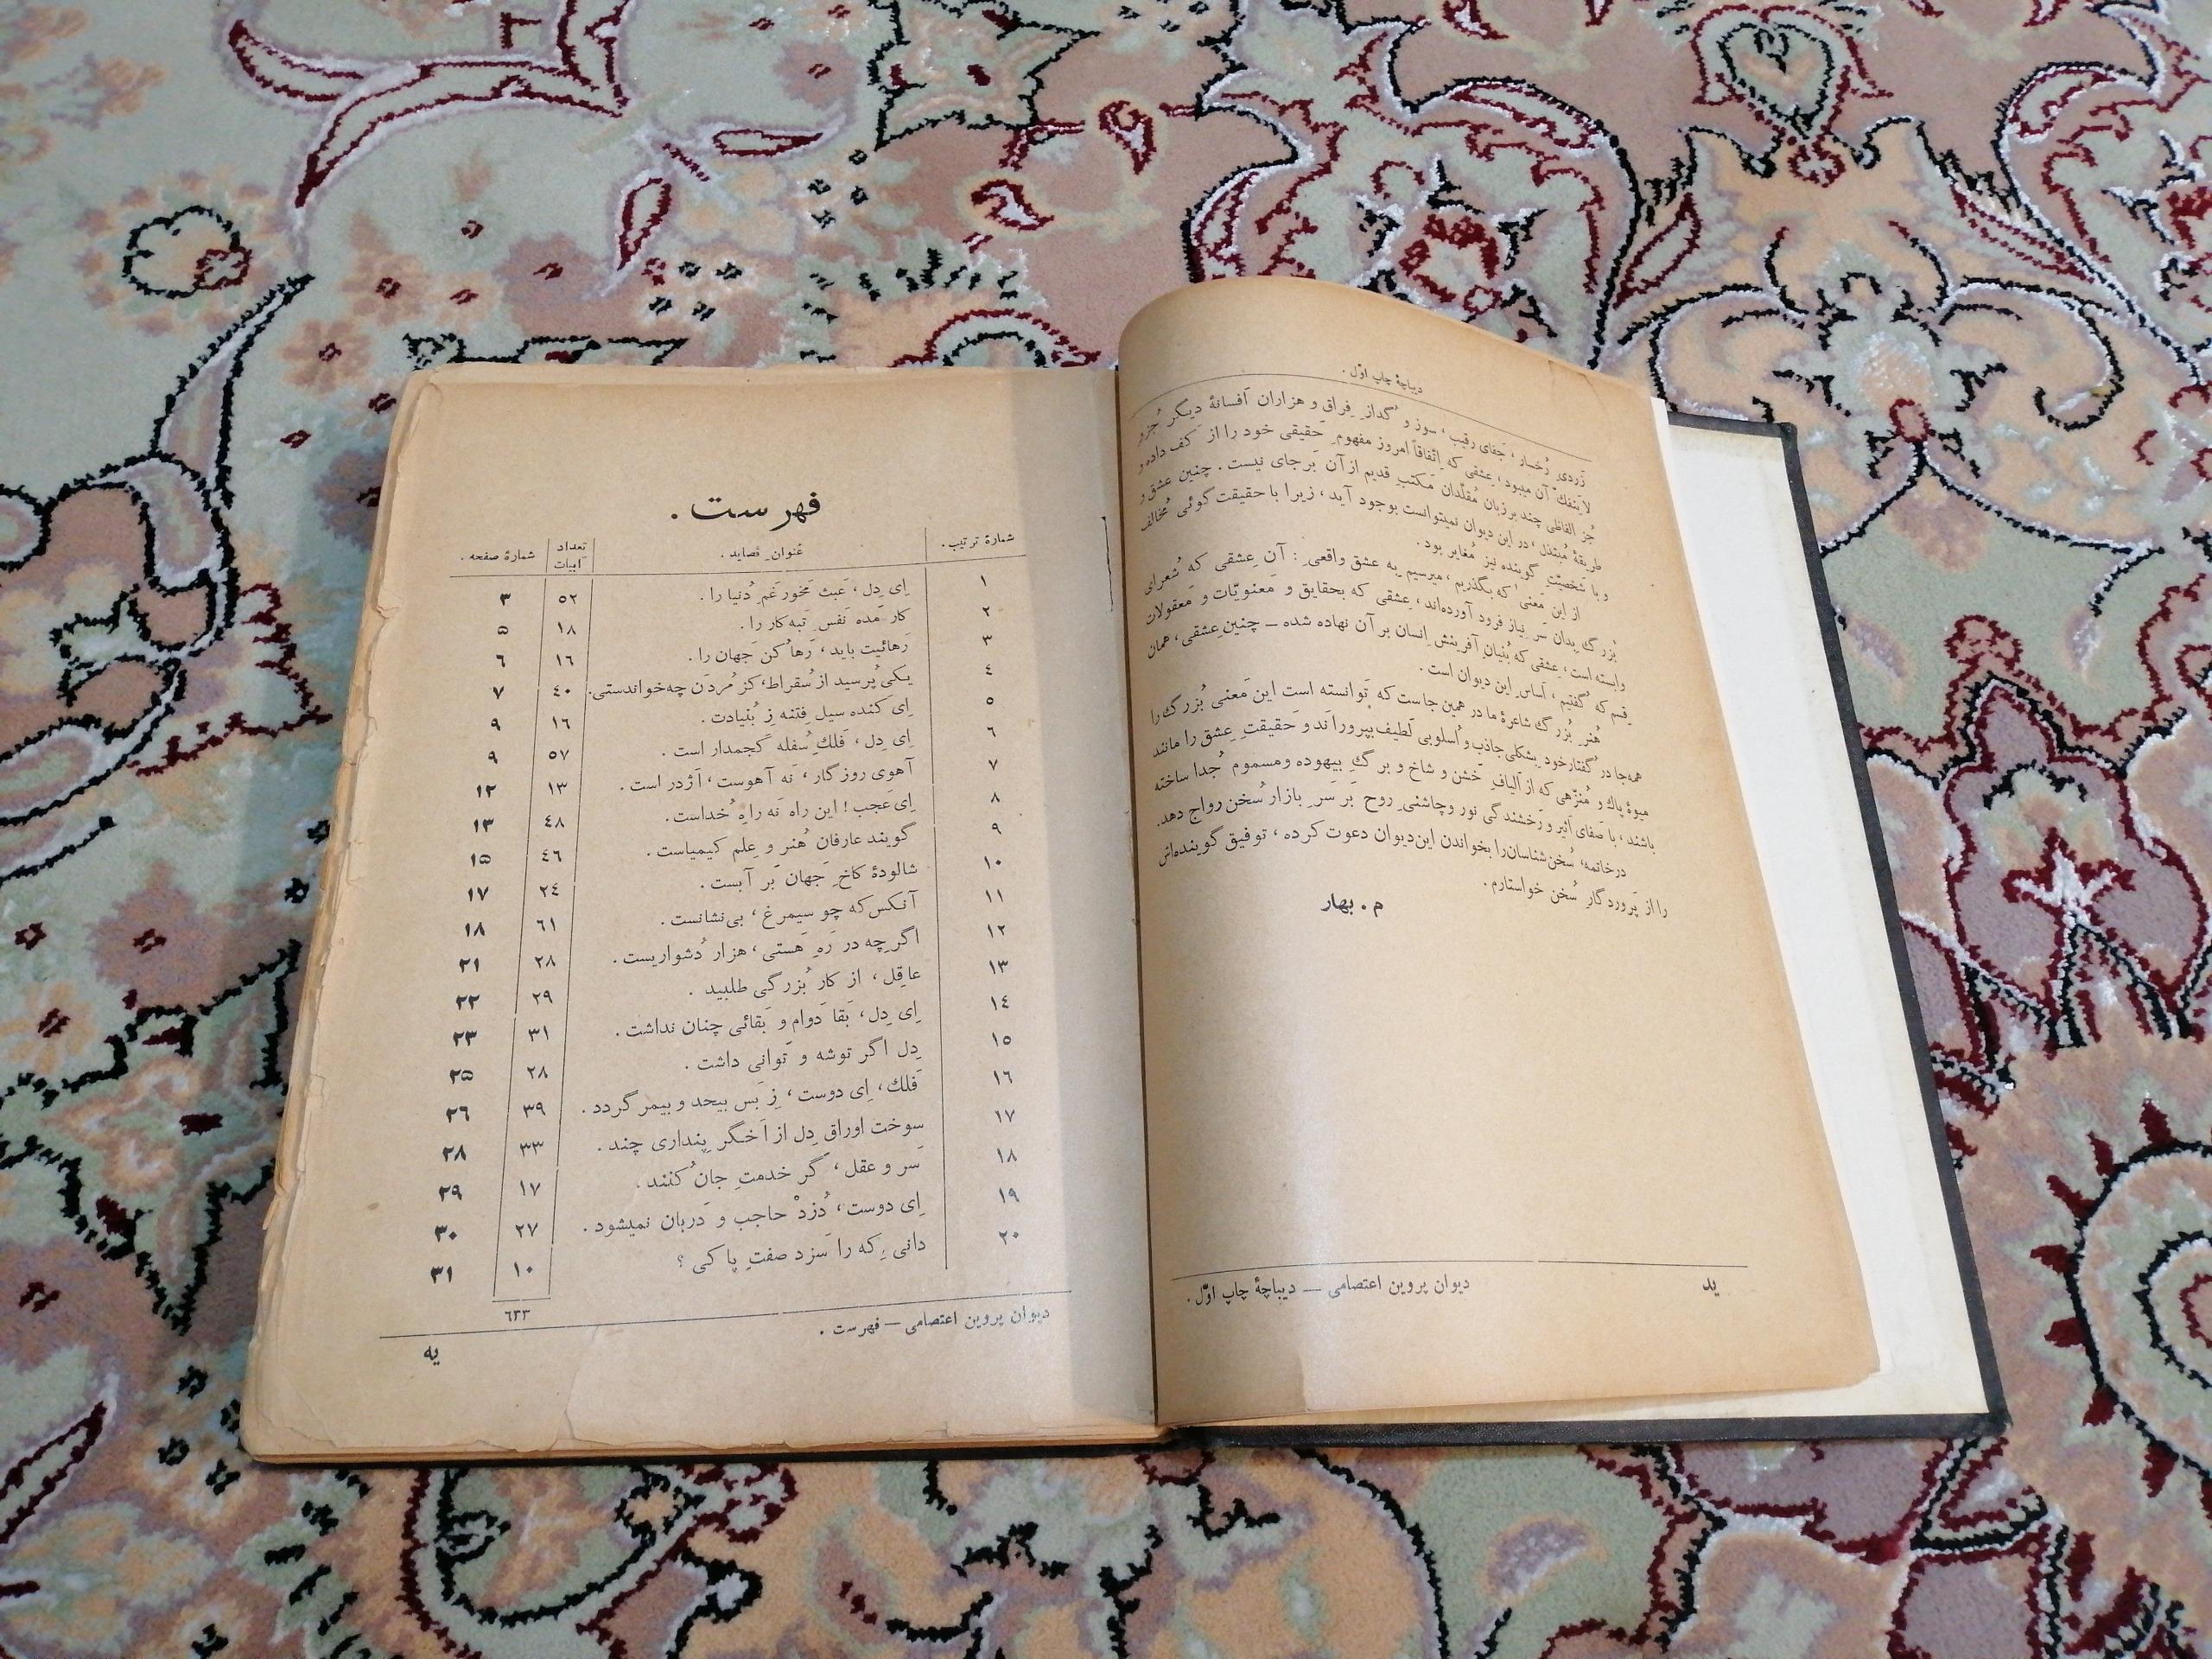 دیباچهٔ چاپ اوّل .
زَردیِ رُخسار ، جَفای رقیب ، سوز و گُدازِ فِراق و هزاران اَفسانهٔ دیگر جُزوِ
لایَنفَكّ آن میبود ، عِشقی که اِتّفاقاً امروز مفهومِ حَقیقی خود را از کَف داده و
جُز الفاظی چند بر زبان مُقلّدان مَکتبِ قدیم از آن بَرجای نیست . چنین عشق و
طریقهٔ مُبتذَل ، در این دیوان نمیتوانست بوجود آید ، زیرا با حقیقت گوئی مُخالف
و با شَخصیّتِ گوینده نیز مُغایر بود .
از این مَعنیٰ که بگذریم ، میرسیم به عشق واقعی : آن عِشقی که شُعرای
بُزرگ بِدان سَرِ نیاز فرود آورده‌اند ، عِشقی که بحقایق و مَعنویّات و مَعقولات
وابسته است ، عِشقی که بُنیانِ آفرینشِ انسان بر آن نهاده شده ــ چنین عِشقی ، همان
قِسم که گُفتیم ، اَساسِ این دیوان است .
هُنرِ بُزرگ شاعرهٔ ما در همین جاست که تَوانسته است این مَعنیِ بُزرگ را
همه‌جا در گُفتار خود بِشکلی جاذِب و اُسلوبی لَطیف بپروراَند و حَقیقتِ عِشق را مانند
میوهٔ پاك و مُنزّهی که از اَلیافِ خَشن و شاخ و برگِ بیهوده و مسموم جُدا ساخته
باشند ، با صَفای اَثیر و رَخشندگی نور و چاشنیِ روح بَر سَرِ بازار سُخن رواج دهد .
در خاتمه ، سُخن شناسان را بخواندن این دیوان دعوت کرده ، توفیق گوینده‌اش
را از پَروردگارِ سُخن خواستارم .
م . بهار
دیوان پروین اعتصامی ــ دیباچهٔ چاپ اوّل .
ید
فهرست .
شمارهٔ ترتیب . عُنوانِ قصاید . تعداد اَبیات شمارهٔ صفحه .
١ اِی دِل ، عَبث مَخور غَمِ دُنیا را . ٥٢ ٣
٢ کار مَده نَفس تَبه‌کار را . ١٨ ٥
٣ رَهائیت باید ، رَها کُن جَهان را . ١٦ ٦
٤ یکی پُرسید از سُقراط ، کز مُردَن چه خواندستی . ٤٠ ٧
٥ اِی کَنده سیل فِتنه زِ بُنیادت . ١٦ ٩
٦ اِی دِل ، فَلكِ سُفله کجمدار است . ٥٧ ٩
٧ آهوی روزگار ، نَه آهوست ، اَژدر است . ١٣ ١٢
٨ اِی عَجب ! این راه نَه راهِ خُداست . ٤٨ ١٣
٩ گویند عارفان هُنر و عِلم کیمیاست . ٤٦ ١٥
١٠ شالودهٔ کاخِ جَهان بَر آبست . ٢٤ ١٧
١١ آنکس که چو سیمرغ ، بی‌نشانست . ٦١ ١٨
١٢ اگرچه در رَهِ هَستی ، هزار دُشواریست . ٢٨ ٢١
١٣ عاقِل ، از کار بُزرگی طلبید . ٢٩ ٢٢
١٤ اِی دِل ، بَقا دَوام و بَقائی چنان نداشت . ٣١ ٢٣
١٥ دِل اگر توشه و تَوانی داشت . ٢٨ ٢٥
١٦ فَلك ، اِی دوست ، زِ بَس بیحد و بیمر گردد . ٣٩ ٢٦
١٧ سوخت اوراق دِل از اَخگرِ پِنداری چند . ٣٣ ٢٨
١٨ سَر و عقل ، گر خدمتِ جان کُنند . ١٧ ٢٩
١٩ اِی دوست ، دُزدْ حاجب و دَربان نمیشود . ٢٧ ٣٠
٢٠ دانی ، که را سَزد صفتِ پاکی ؟ ١٠ ٣١
٦٣٣
دیوان پروین اعتصامی ــ فهرست .
یه